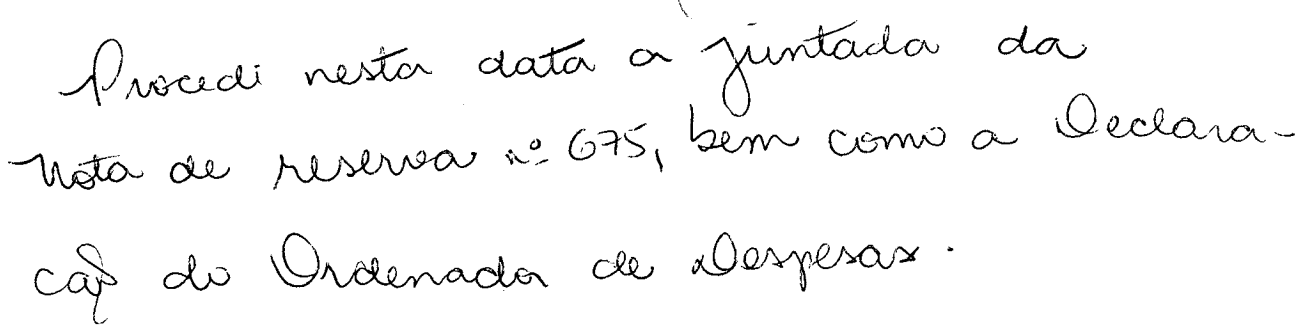 Procedi nesta data a juntada da
Nota de reserva nº 675, bem como a Declara-
ção do Ordenador de Despesas.